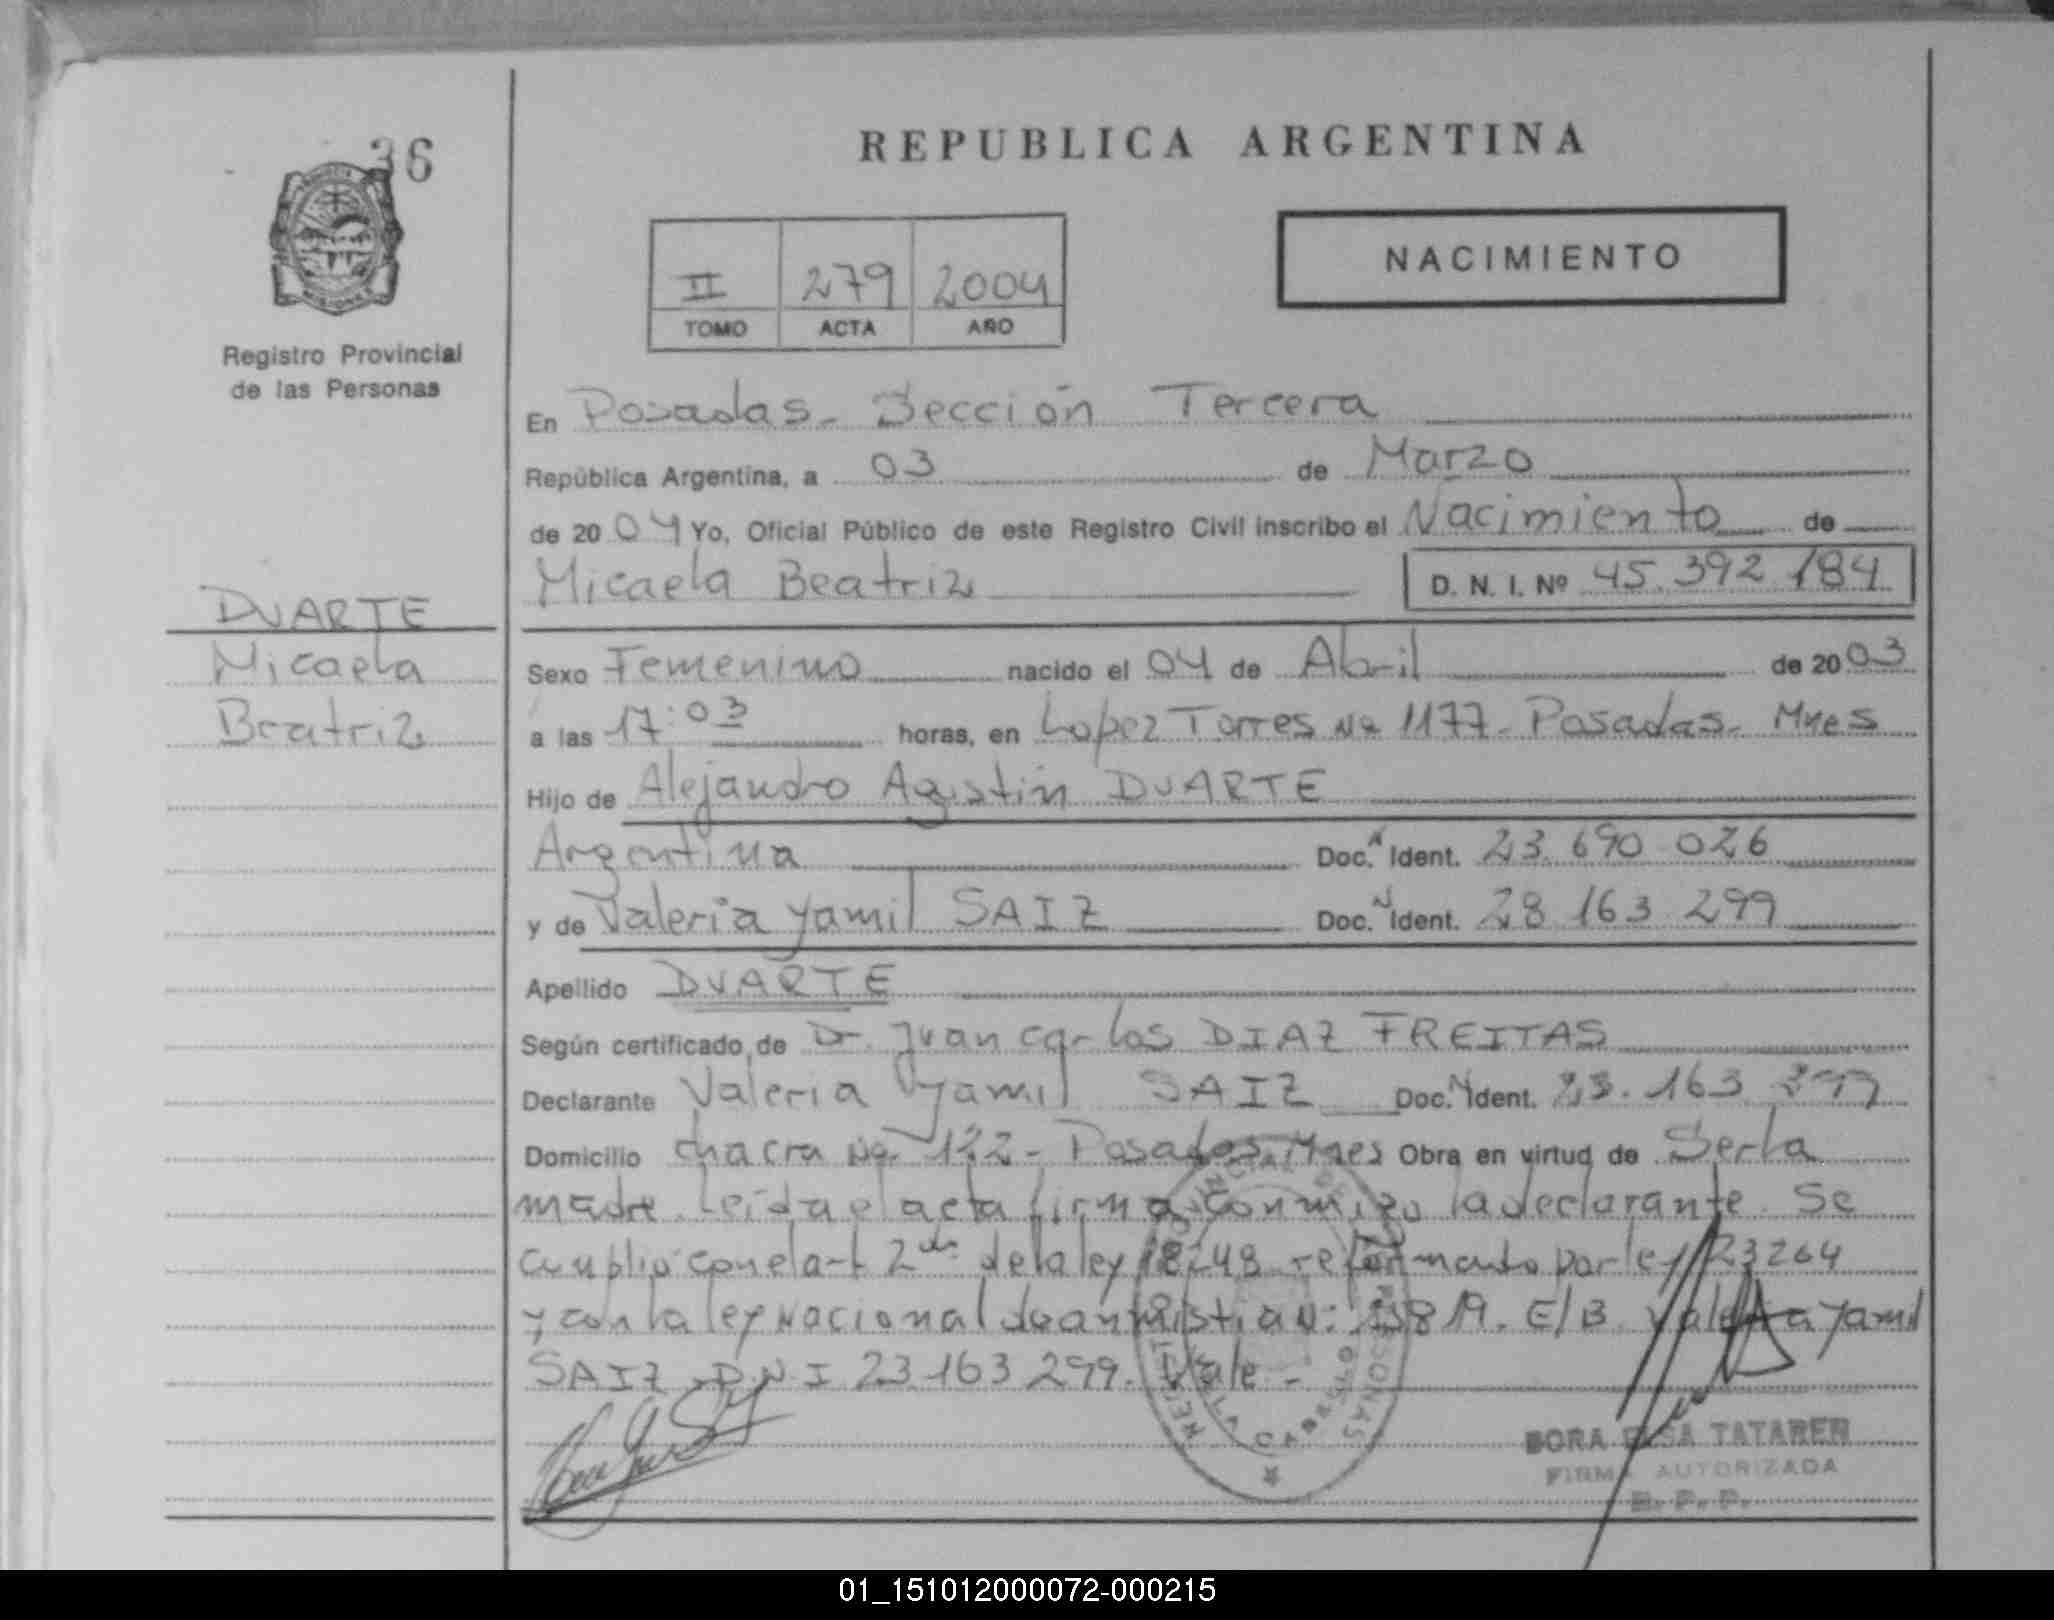 36
REPUBLICA ARGENTINA
NACIMIENTO
II 279 2004
TOMO ACTA AÑO
Registro Provincial
de las Personas
En Posadas - Sección Tercera
República Argentina, a 03 de Marzo
de 2004 Yo, Oficial Público de este Registro Civil inscribo el Nacimiento de
Micaela Beatriz D. N. I. Nº 45.392.184
DUARTE
Micaela
Beatriz
Sexo Femenino nacido el 04 de Abril de 2003
a las 17:03 horas, en Lopez Torres Nº 1177 - Posadas - Mnes
Hijo de Alejandro Agustín DUARTE
Argentina Doc. N Ident. 23.690.026
y de Valeria Yamil SAIZ Doc. N Ident. 28.163.299
Apellido DUARTE
Según certificado de Dr. Juan Carlos DIAZ FREITAS
Declarante Valeria Yamil SAIZ Doc. N Ident. 23.163.299
Domicilio Chacra Nº 122 - Posadas Mnes Obra en virtud de Ser la
madre. Leída el acta firma conmigo la declarante. Se
cumplió con el art 2do de la ley 18248 reformando por ley 23264
y con la ley Nacional de amnistia N: E/B. Valeria Yamil
SAIZ D.N.I 23.163.299. Vale -
DORA ELSA TATAREN
FIRMA AUTORIZADA
R. P. P.
01_151012000072-000215